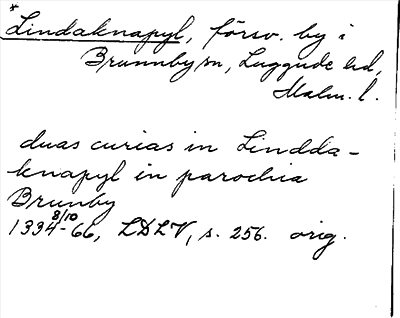 *Lindaknapyl, försv. by i
Brunnby sn, Luggude hd,
Malm. l.
duas curias in Lindda-
knapyl in parochia
Brunby
1334 8/10 -66, LDLV, s. 256. orig.